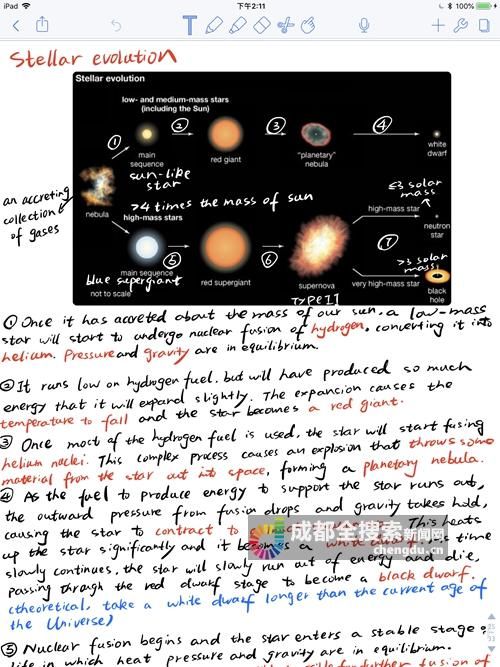 iPad
下午2:11
100%
Stellar evolution
Stellar evolution
low- and medium-mass stars
(including the Sun)
① ② ③ ④
main
sequence
red giant
"planetary"
nebula
white
dwarf
sun-like
star
an accreting
collection
of gases
nebula
>4 times the mass of sun
high-mass stars
≤3 solar
mass
high-mass star
neutron
star
⑤ ⑥ ⑦
main sequence
blue supergiant
not to scale
red supergiant
supernova
TYPE II
>3 solar
mass
very high-mass star
black
hole
① Once it has accreted about the mass of our sun, a low-mass
star will start to undergo nuclear fusion of hydrogen, converting it into
helium. Pressure and gravity are in equilibrium.
② It runs low on hydrogen fuel, but will have produced so much
energy that it will expand slightly. The expansion causes the
temperature to fall and the star becomes a red giant.
③ Once most of the hydrogen fuel is used, the star will start fusing
helium nuclei. This complex process causes an explosion that throws some
material from the star out into space, forming a planetary nebula.
④ As the fuel to produce energy to support the star runs out,
the outward pressure from fusion drops and gravity takes hold,
causing the star to contract to This heats
up the star significantly and it becomes a white dwarf. As time
slowly continues, the star will slowly run out of energy and die,
passing through the red dwarf stage to become a black dwarf.
(theoretical, take a white dwarf longer than the current age of
the Universe)
⑤ Nuclear fusion begins and the star enters a stable stage
life in which heat pressure and gravity are in equilibrium.
further fusion of
成都全搜索新闻网
chengdu.cn